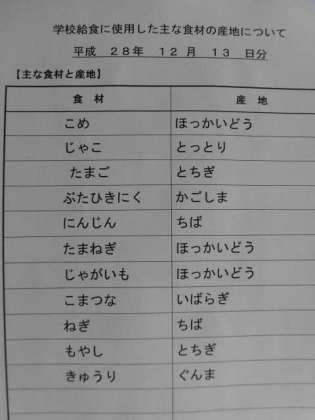 学校給食に使用した主な食材の産地について
平成 28年 12月 13日分
【主な食材と産地】
食材 産地
こめ ほっかいどう
じゃこ とっとり
たまご とちぎ
ぶたひきにく かごしま
にんじん ちば
たまねぎ ほっかいどう
じゃがいも ほっかいどう
こまつな いばらぎ
ねぎ ちば
もやし とちぎ
きゅうり ぐんま